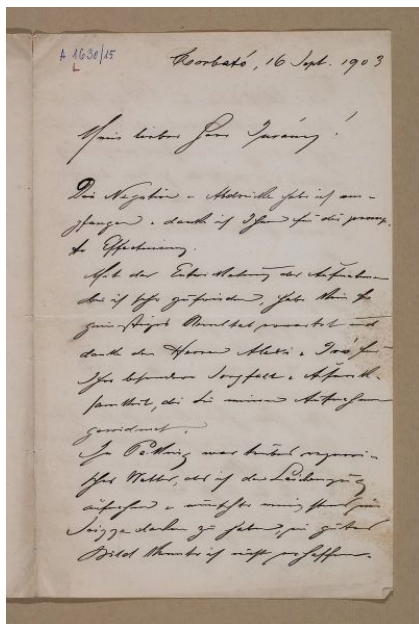 A 1630/15
L
Korbató, 16 Sept. 1903
Mein lieber Herr Turányi!
Die Negative u. Abdrücke habe ich em-
pfangen u. danke ich Ihnen für die promp-
te Effectuirung.
Mit der Entwickelung der Aufnahmen
bin ich sehr zufrieden, habe kein so
günstiges Resultat erwartet und
danke den Herren Alexi u. für
Ihre besondere Sorgfalt u. Aufmerk-
samkeit, die Sie meinen Aufnahmen
gewidmet.
In war trübes regneri-
sches Wetter, als ich den Leichenzug
aufnahm u. um
zu haben, ein gutes
Bild konnte ich nicht erhoffen.